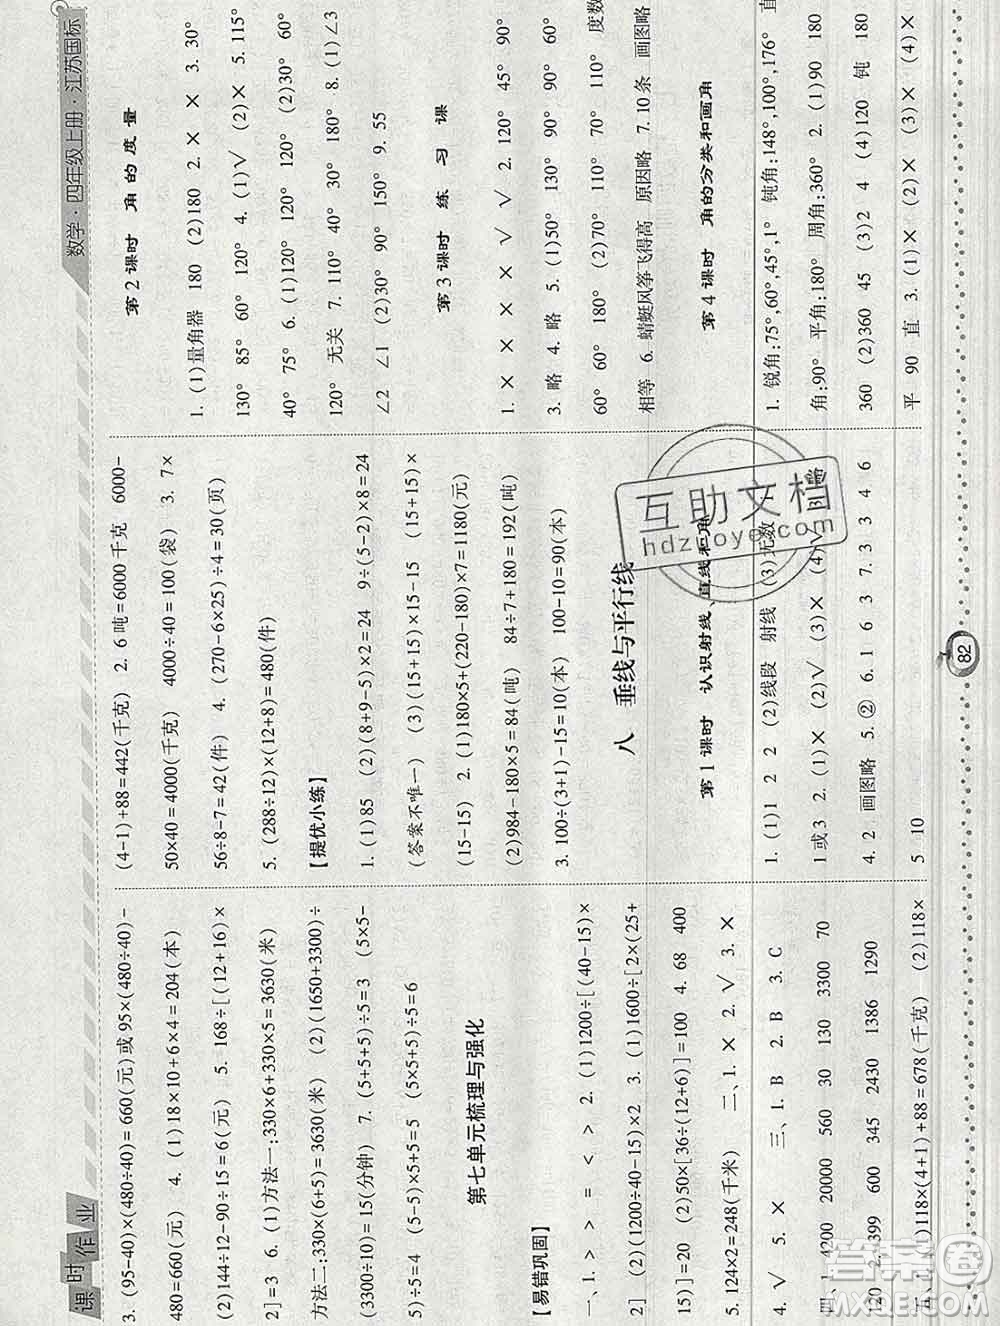 课时作业
数学·四年级上册·江苏国标
3. (95-40)×(480÷40)=660(元)或95×(480÷40)-(480÷40)-
480=660(元)　4. (1)18×10+6×4=204(本)
(2)144÷12-90÷15=6(元)　5. 168÷[(12+16)×
2]=3　6. (1)方法一:330×6+330×5=3630(米)
方法二:330×(6+5)=3630(米)　(2)(1650+3300)÷
(3300÷10)=15(分钟)　7. (5+5+5)÷5=3　(5×5-
5)÷5=4　(5-5)×5+5=5　(5×5+5)÷5=6
第七单元梳理与强化
【易错巩固】
一、1. >　>　=　<　>　2. (1)1200÷[(40-15)×
2]　(2)(1200÷40-15)×2　3. (1)1600÷[2×(25+
15)]=20　(2)50×[36÷(12+6)]=100　4. 68　400
5. 124×2=248(千米)　二、1. ×　2. √　3. ×
4. √　5. ×　三、1. B　2. B　3. C
四、1. 4200　20000　560　30　130　3300　70
120　2. 399　600　345　2430　1386　1290
五、1. (1)118×(4+1)+88=678(千克)　(2)118×
(4-1)+88=442(千克)　2. 6吨=6000千克　6000-
50×40=4000(千克)　4000÷40=100(袋)　3. 7×
56÷8-7=42(件)　4. (270-6×25)÷4=30(页)
5. (288÷12)×(12+8)=480(件)
【提优小练】
1. (1)85　(2)(8+9-5)×2=24　9÷(5-2)×8=24
(答案不唯一)　(3)(15+15)×15-15　(15+15)×
(15-15)　2. (1)180×5+(220-180)×7=1180(元)
(2)984-180×5=84(吨)　84÷7+180=192(吨)
3. 100÷(3+1)-15=10(本)　100-10=90(本)
八　垂线与平行线
第1课时　认识射线、直线和角
1. (1)1　2　2　(2)线段　射线　(3)无数　1
1或3　2. (1)×　(2)√　(3)×　(4)√　3.
4. 2　画图略　5. ②　6. 1　6　3　7. 3　3　4　6
5　10
第2课时　角的度量
1. (1)量角器　180　(2)180　2. ×　×　3. 30°
130°　85°　60°　120°　4. (1)√　(2)×　5. 115°
40°　75°　6. (1)120°　120°　120°　(2)30°　60°
120°　无关　7. 110°　40°　30°　180°　8. (1)∠3
∠2　∠1　(2)30°　90°　150°　9. 55
第3课时　练习课
1. ×　×　×　×　√　√　2. 120°　45°　90°
3. 略　4. 略　5. (1)50°　130°　90°　90°　60°
60°　60°　180°　(2)70°　110°　70°　110°　度数
相等　6. 蜻蜓风筝飞得高　原因略　7. 10条　画图略
第4课时　角的分类和画角
1. 锐角:75°,60°,45°,1°　钝角:148°,100°,176°　直
角:90°　平角:180°　周角:360°　2. (1)90　180
360　(2)360　45　(3)2　4　(4)120　钝　180
平　90　直　3. (1)×　(2)×　(3)×　(4)×
82
互助文档
hdzuoye.com
答案圈
MXQE.COM